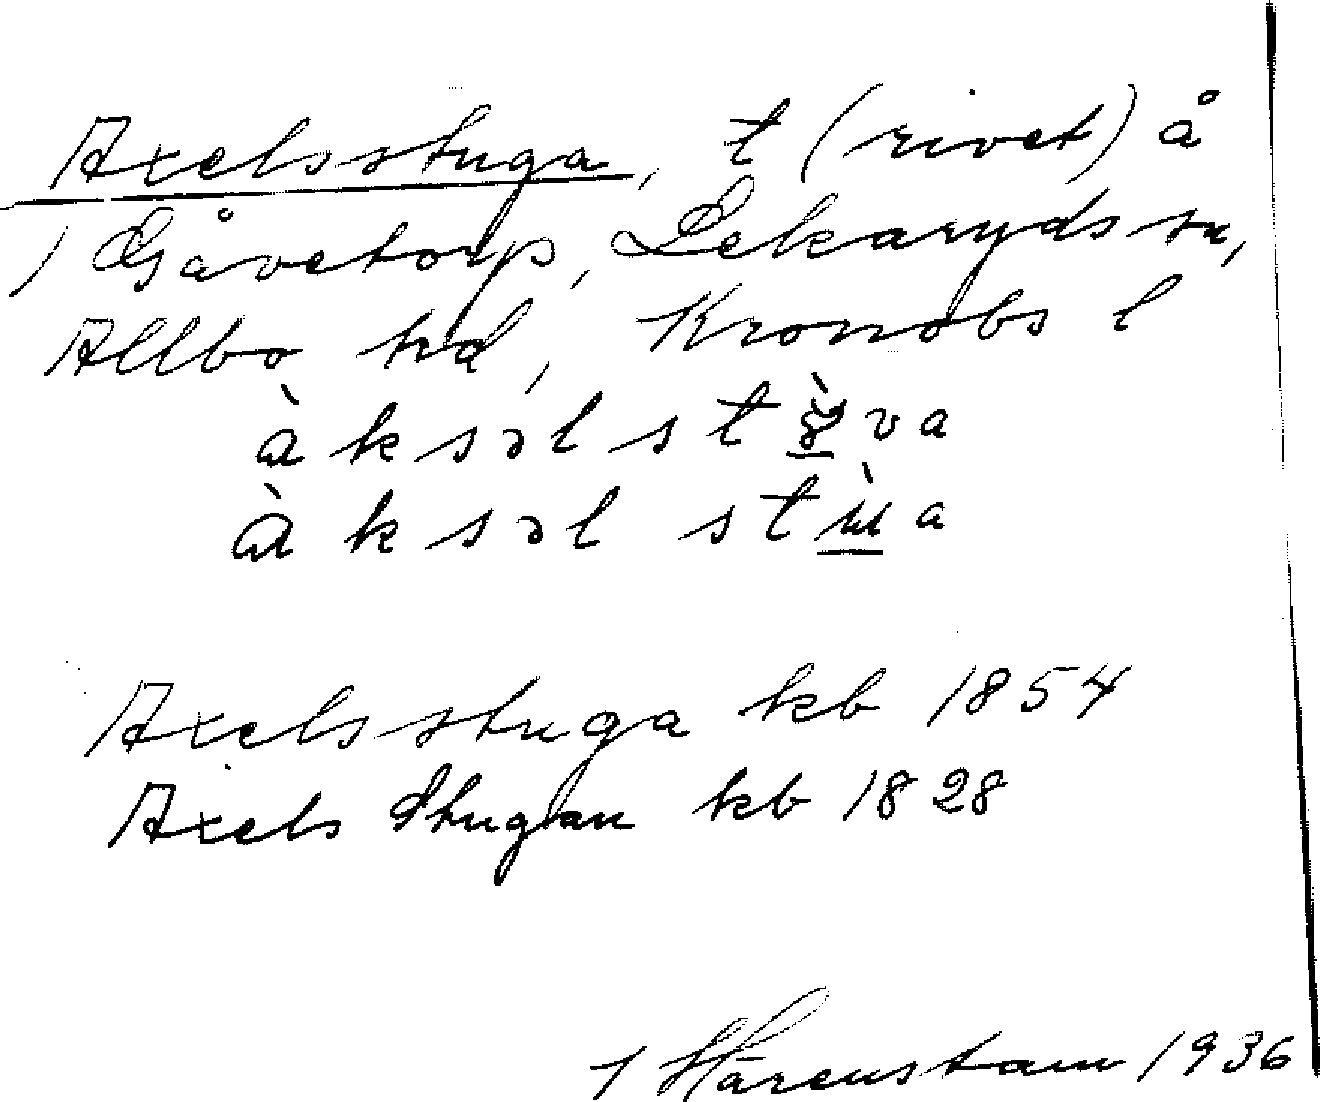 Axelsstuga, t (rivet) å
1 Gåvetorp, Lekaryds sn,
Allbo hd, Kronobs l
àksəlstỳva
àksəl stùa
Axelsstuga kb 1854
Axels Stugan kb 1828
Härenstam 1936